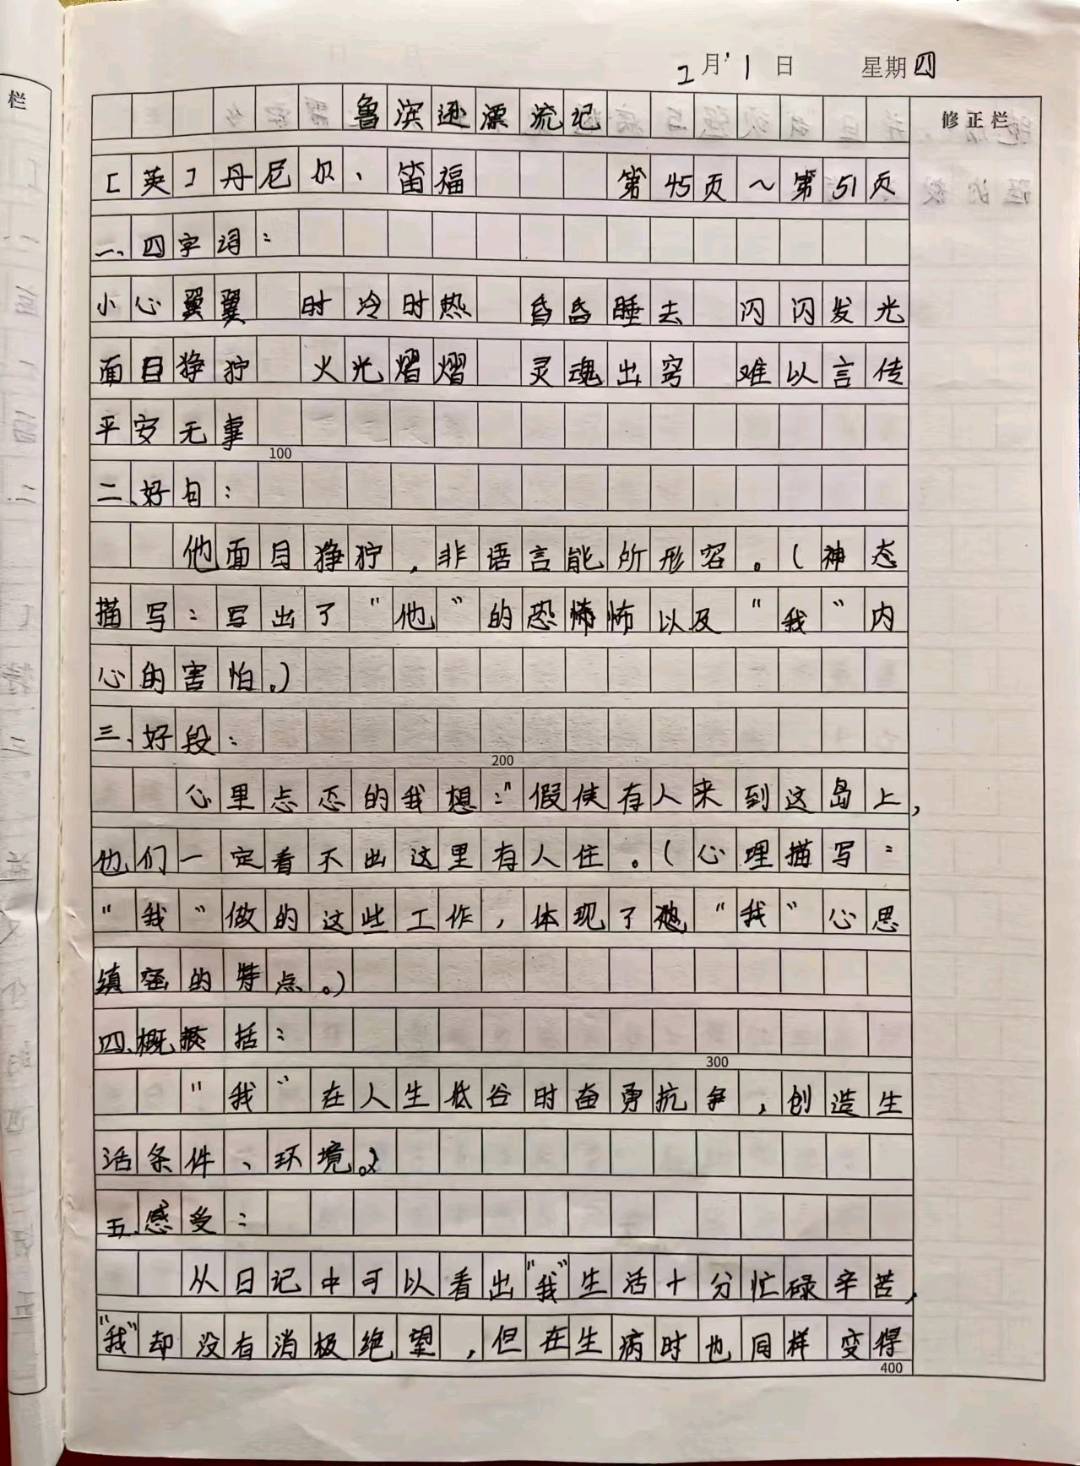 2月1日 星期四
修正栏
栏
鲁滨逊漂流记
[英]丹尼尔、笛福 第45页~第51页
一、四字词:
小心翼翼 时冷时热 昏昏睡去 闪闪发光
面目狰狞 火光熠熠 灵魂出窍 难以言传
平安无事
100
二、好句:
他面目狰狞,非语言能所形容。(神态
描写:写出了“他”的恐怖以及“我”内
心的害怕。)
三、好段:
200
心里忐忑的我想:“假使有人来到这岛上,
他们一定看不出这里有人住。(心理描写:
“我”做的这些工作,体现了“我”心思
缜密的特点。)
四、概括:
300
“我”在人生低谷时奋勇抗争,创造生
活条件、环境。
五、感受:
从日记中可以看出“我”生活十分忙碌辛苦,
“我”却没有消极绝望,但在生病时也同样变得
400